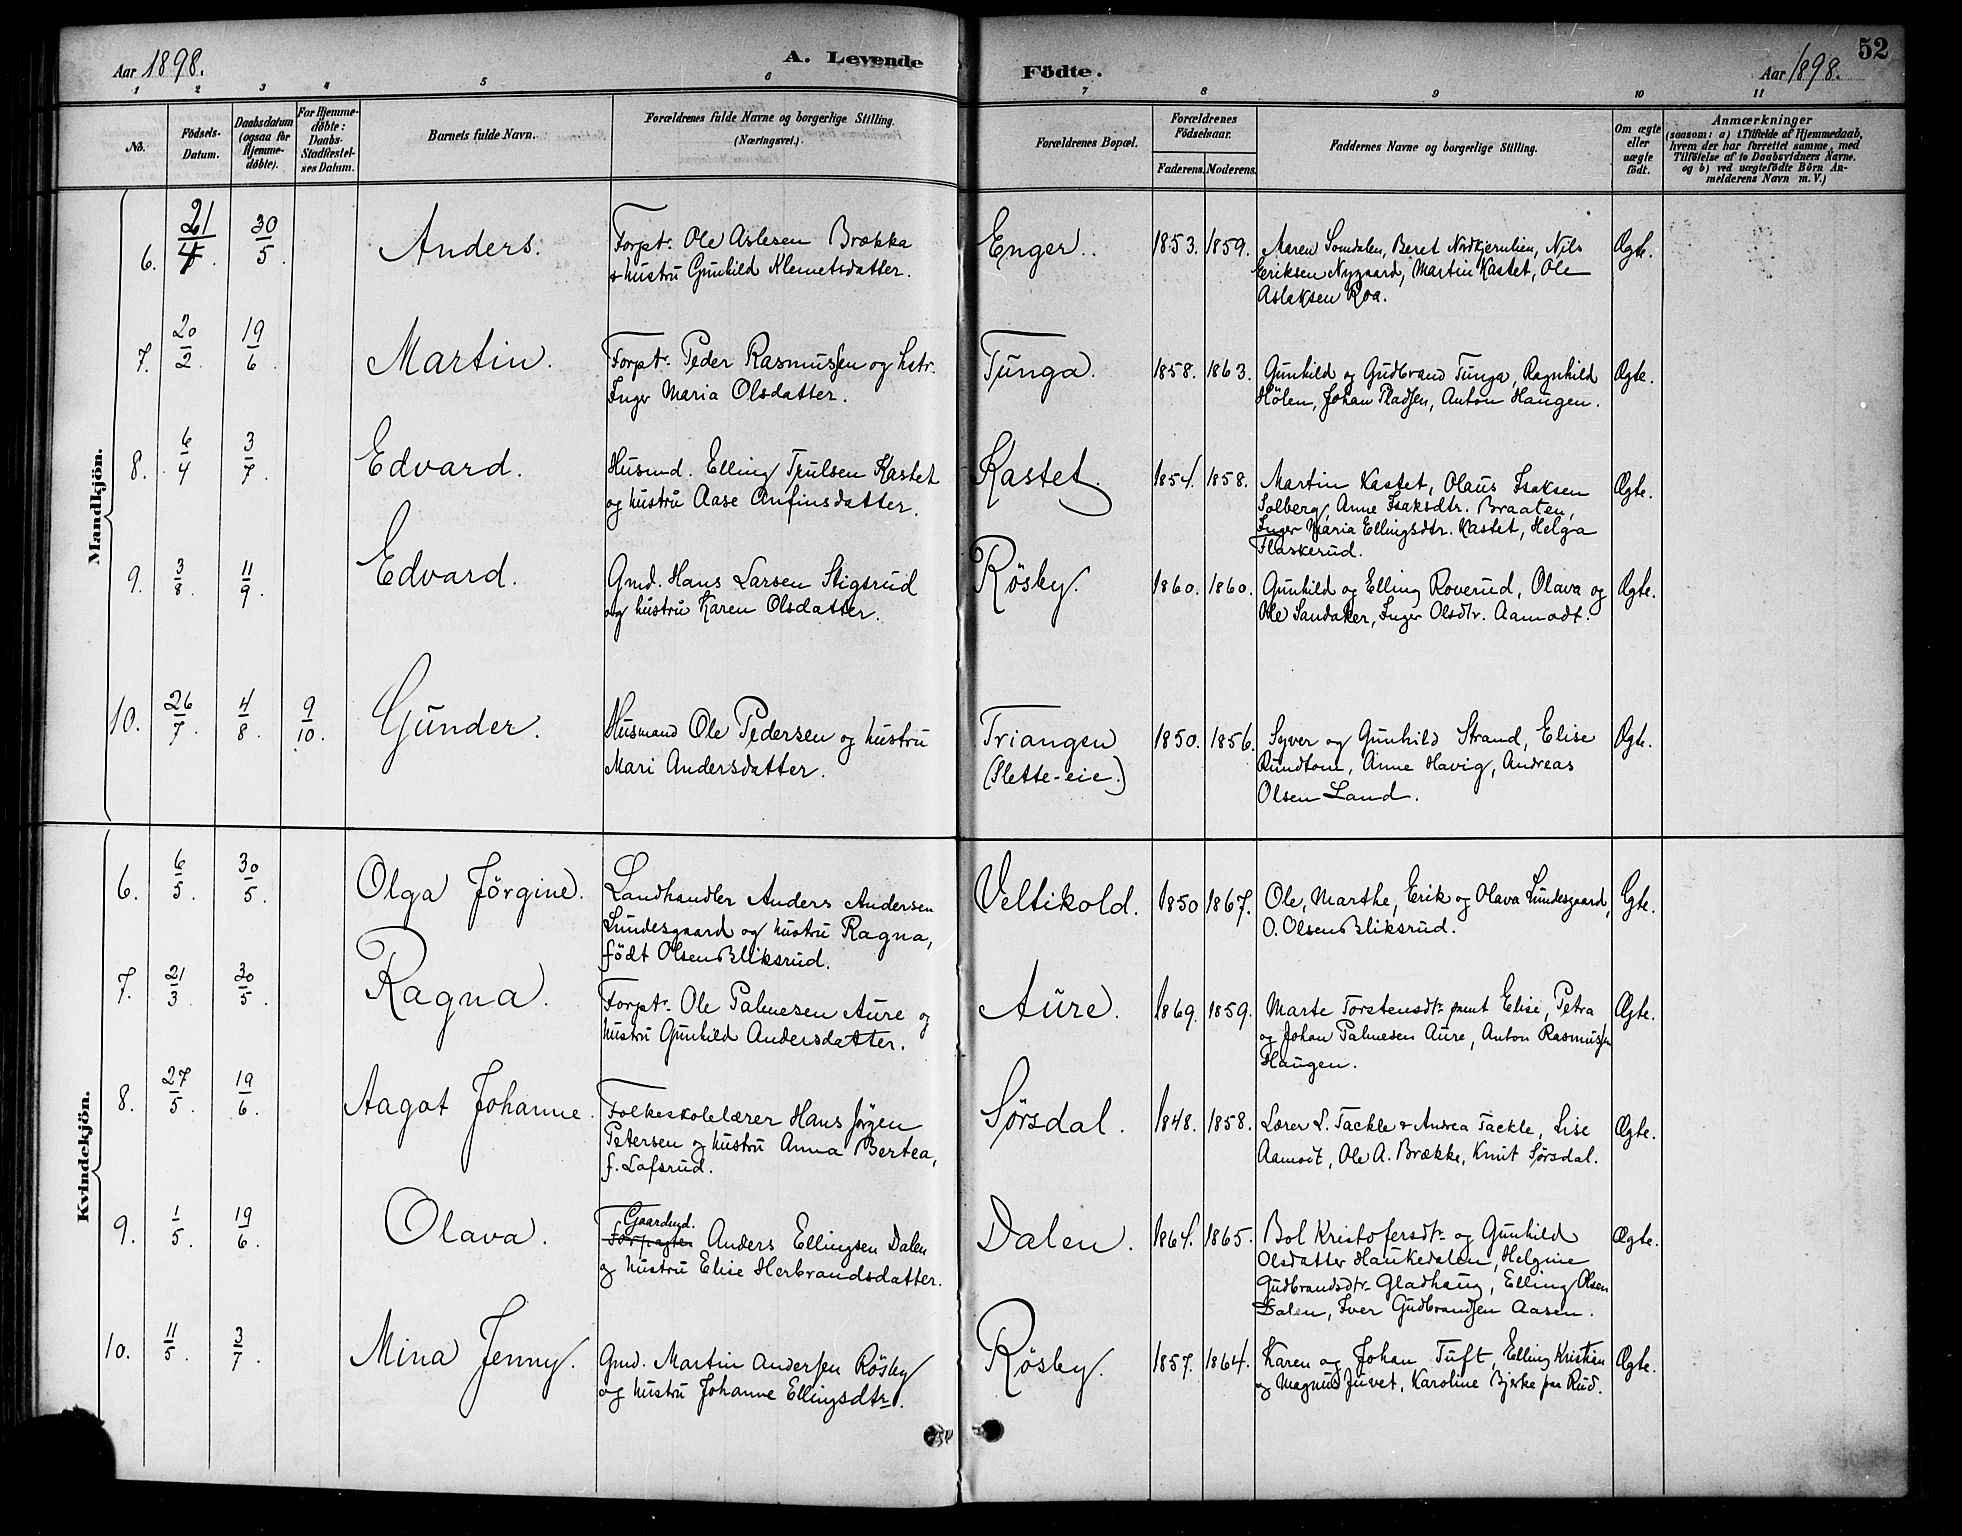 Aar 1898.
A. Levende
Födte.
Aar 1898.
52
1 2 3 4 5 6 7 8 9 10 11
No.
Födsels-
Datum.
Daabsdatum
(ogsaa for
Hjemme-
döbte).
For Hjemme-
döbte:
Daabs-
Stadfæstel-
ses Datum.
Barnets fulde Navn.
Forældrenes fulde Navne og borgerlige Stilling.
(Næringsvei.)
Forældrenes Bopæl.
Forældrenes
Födselsaar.
Faderens. Moderens.
Faddernes Navne og borgerlige Stilling.
Om ægte
eller
uægte
födt.
Anmærkninger
(saasom: a) i Tilfælde af Hjemmedaab,
hvem der har forrettet samme, med
Tilföielse af to Daabsvidners Navne.
og b) ved uægtefödte Börn An-
melderens Navn m. V.)
Mandkjön.
6. 21/4. 30/5. Anders. Forptr. Ole Aslesen Brækka
& hustru Gunhild Klemetsdatter.
Enger. 1853. 1859. Maren Somdalen, Beret Nordkjernlien, Nils
Eriksen Nygaard, Martin Kastet, Ole
Aslaksen Roa.
Ægte.
7. 20/2. 19/6. Martin. Forptr. Peder Rasmussen og hstr.
Inger Maria Olsdatter.
Tunga. 1858. 1863. Gunhild og Gudbrand Tunga, Ragnhild
Hölen, Johan Pladsen, Anton Haugen.
Ægte.
8. 6/4 3/7. Edvard. Husmd. Elling Trulsen Kastet
og hustru Aase Anfinsdatter.
Kastet. 1854. 1858. Martin Kastet, Olaus Isaksen
Solberg, Anne Isaksdtr. Braaten,
Inger Maria Ellingsdtr. Kastet, Helga
Flaskerud.
Ægte.
9. 3/8. 11/9. Edvard. Gmd. Hans Larsen Stigsrud
og hustru Karen Olsdatter.
Røsby. 1860. 1860. Gunhild og Elling Roverud, Olava og
Ole Sandaker, Inger Olsdtr. Aamodt.
Ægte.
10. 26/7. 4/8. 9/10. Gunder. Husmand Ole Pedersen og hustru
Mari Andersdatter.
Triangen
(Slette-eie.)
1850. 1856. Syver og Gunhild Strand, Elise
Rundtom, Anne Havig, Andreas
Olsen Land.
Ægte.
Kvindekjön.
6. 6/5. 30/5. Olga Jörgine. Landhandler Anders Andersen
Lundesgaard og hustru Ragna,
födt Olsen Bliksrud.
Veltikold. 1850 1867. Ole, Marthe, Erik og Olava Lundesgaard,
O. Olsen Bliksrud.
Ægte.
7. 21/3. 30/5. Ragna. Forptr. Ole Palmesen Aure og
hustru Gunhild Andersdatter.
Aure. 1869. 1859. Marte Torstensdtr samt Elise, Petra
og Johan Palmesen Aure, Anton Rasmussen
Haugen.
Ægte.
8. 27/5. 19/6. Aagot Johanne. Folkeskolelærer Hans Jørgen
Petersen og hustru Anna Bertea,
f. Lafsrud.
Sørsdal. 1848. 1858. Lærer L. Tackle & Andrea Tackle, Lise
Aamodt, Ole A. Brække, Knut Sørsdal.
Ægte.
9. 1/5. 19/6. Olava. Gaardmd.
Forpagter Anders Ellingsen Dalen
og hustru Elise Herbrandsdatter.
Dalen. 1864. 1865. Bol Kristofersdtr og Gunhild
Olsdatter Haukedalen, Helgine
Gudbrandsdtr. Gladhaug, Elling Olsen
Dalen, Iver Gudbrandsen Aasen.
Ægte.
10. 11/5. 3/7. Mina Jenny. Gmd. Martin Andersen Røsby
og hustru Johanne Ellingsdtr.
Røsby. 1857. 1864. Karen og Johan Tuft, Elling Kristian
og Magnus Juvet, Karoline Bjerke paa Rud.
Ægte.